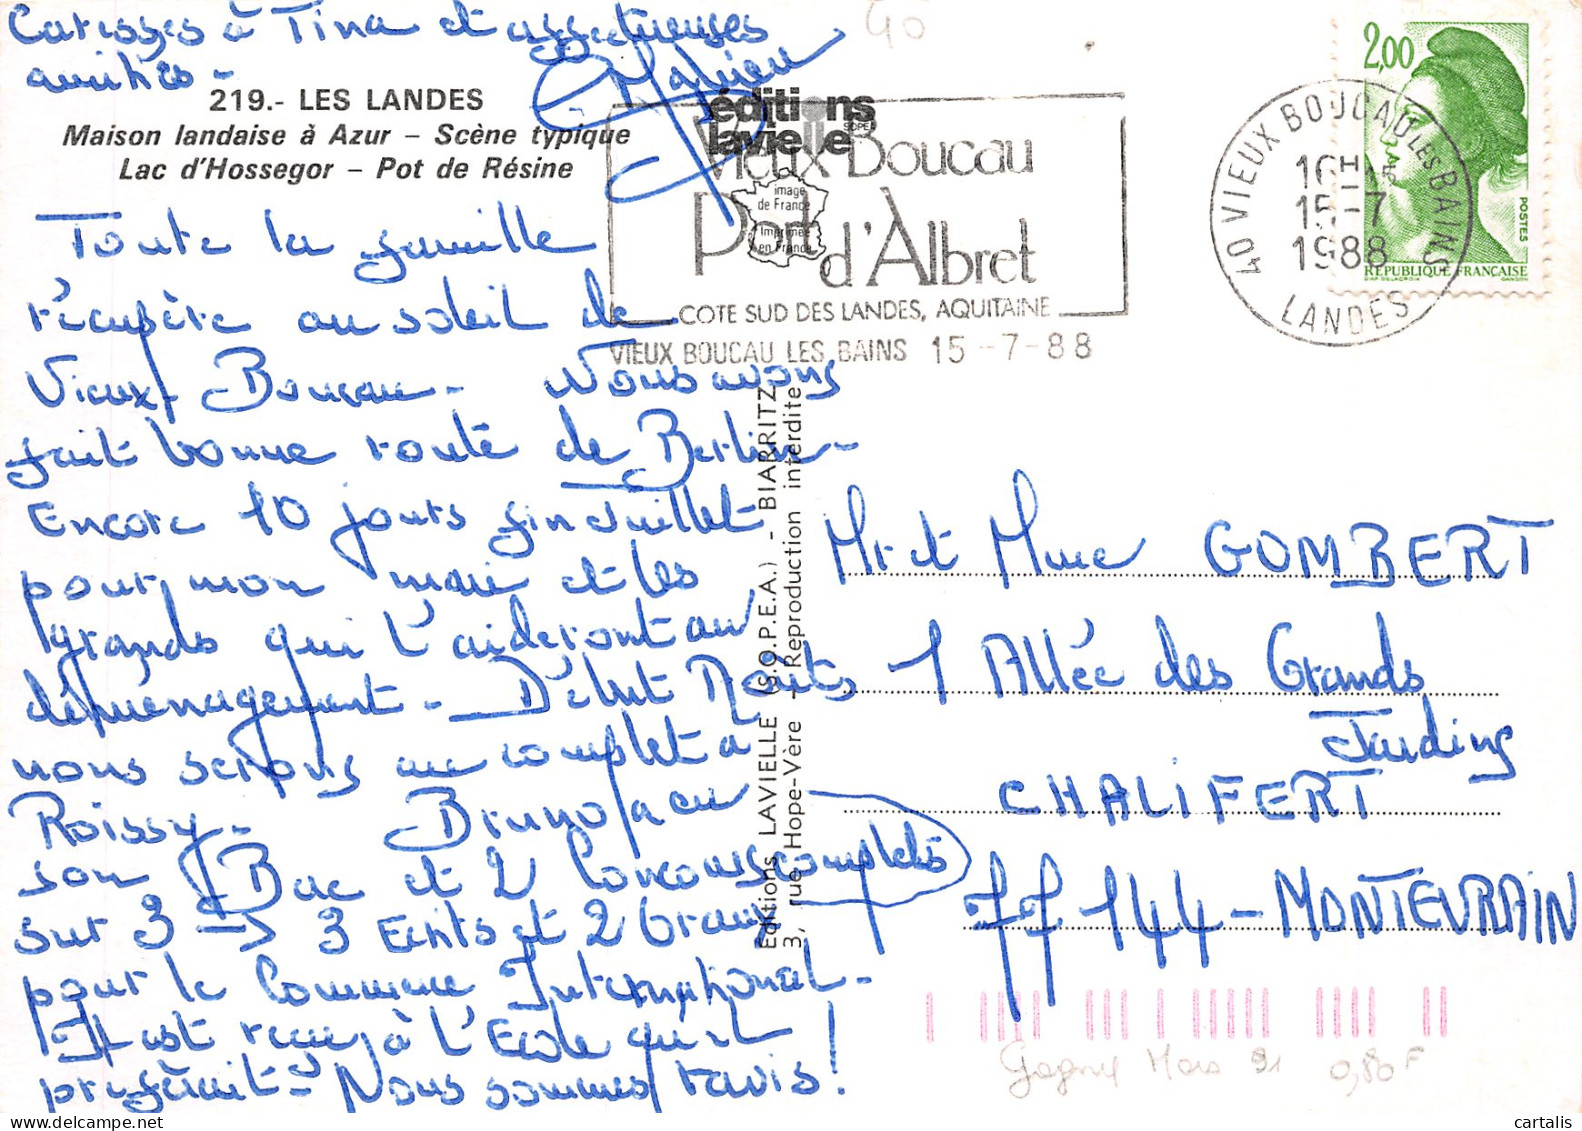 Caresses à Tina et affectueuses
amitiés -
219.- LES LANDES
Maison landaise à Azur – Scène typique
Lac d'Hossegor – Pot de Résine
éditions
lavielle
SOPEA
image
de France
Imprimée
en France
Vieux Boucau
Port d'Albret
COTE SUD DES LANDES, AQUITAINE
VIEUX BOUCAU LES BAINS 15 -7-88
40 VIEUX BOUCAU LES BAINS
16H
15-7
1988
LANDES
2,00
POSTES
REPUBLIQUE FRANÇAISE
Toute la famille
récupère au soleil de
Vieux Boucau - Nous avons
fait bonne route de Berlin -
Encore 10 jours fin Juillet
pour mon mari et les
grands qui l'aideront au
déménagement - Début Août
nous serons au complet à
Roissy - Bruno a eu
son Bac et 2 Concours complets
sur 3 → 3 Ecrits et 2 Oraux
pour le Commerce International -
Il est reçu à l'Ecole qu'il
préférait - Nous sommes ravis !
Editions LAVIELLE (S.O.P.E.A.) - BIARRITZ
3, rue Hope-Vère - Reproduction interdite
Mr et Mme GOMBERT
1 Allée des Grands
Jardins
CHALIFERT
77 144 - MONTEVRAIN
40
Mars 91 0,80 F
cartalis
www.delcampe.net